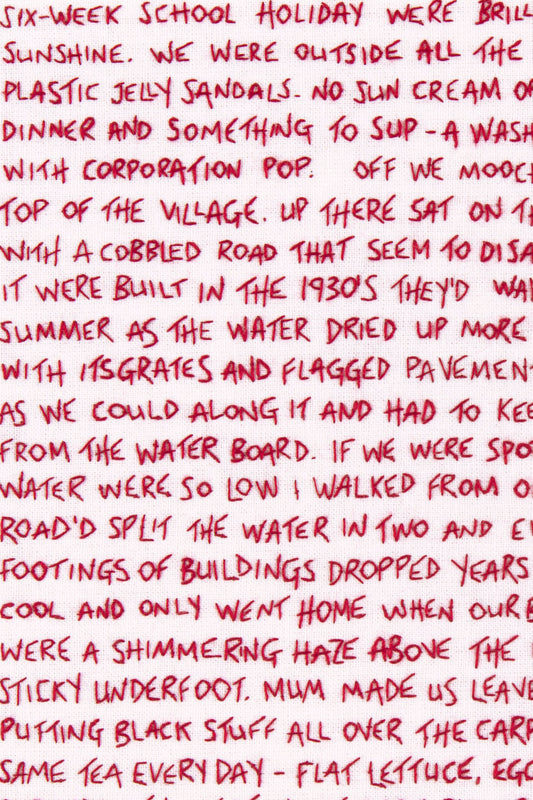 SIX-WEEK SCHOOL HOLIDAY WERE BRILL
SUNSHINE. WE WERE OUTSIDE ALL THE
PLASTIC JELLY SANDALS. NO SUN CREAM
DINNER AND SOMETHING TO SUP - A WASH
WITH CORPORATION POP. OFF WE MOOCH
TOP OF THE VILLAGE. UP THERE SAT ON TH
WITH A COBBLED ROAD THAT SEEM TO DISA
IT WERE BUILT IN THE 1930'S THEY'D WA
SUMMER AS THE WATER DRIED UP MORE
WITH ITS GRATES AND FLAGGED PAVEMEN
AS WE COULD ALONG IT AND HAD TO KEE
FROM THE WATER BOARD. IF WE WERE SPO
WATER WERE SO LOW I WALKED FROM O
ROAD'D SPLIT THE WATER IN TWO AND E
FOOTINGS OF BUILDINGS DROPPED YEARS
COOL AND ONLY WENT HOME WHEN OUR
WERE A SHIMMERING HAZE ABOVE THE
STICKY UNDERFOOT. MUM MADE US LEAVE
PUTTING BLACK STUFF ALL OVER THE CARP
SAME TEA EVERY DAY - FLAT LETTUCE, EGG